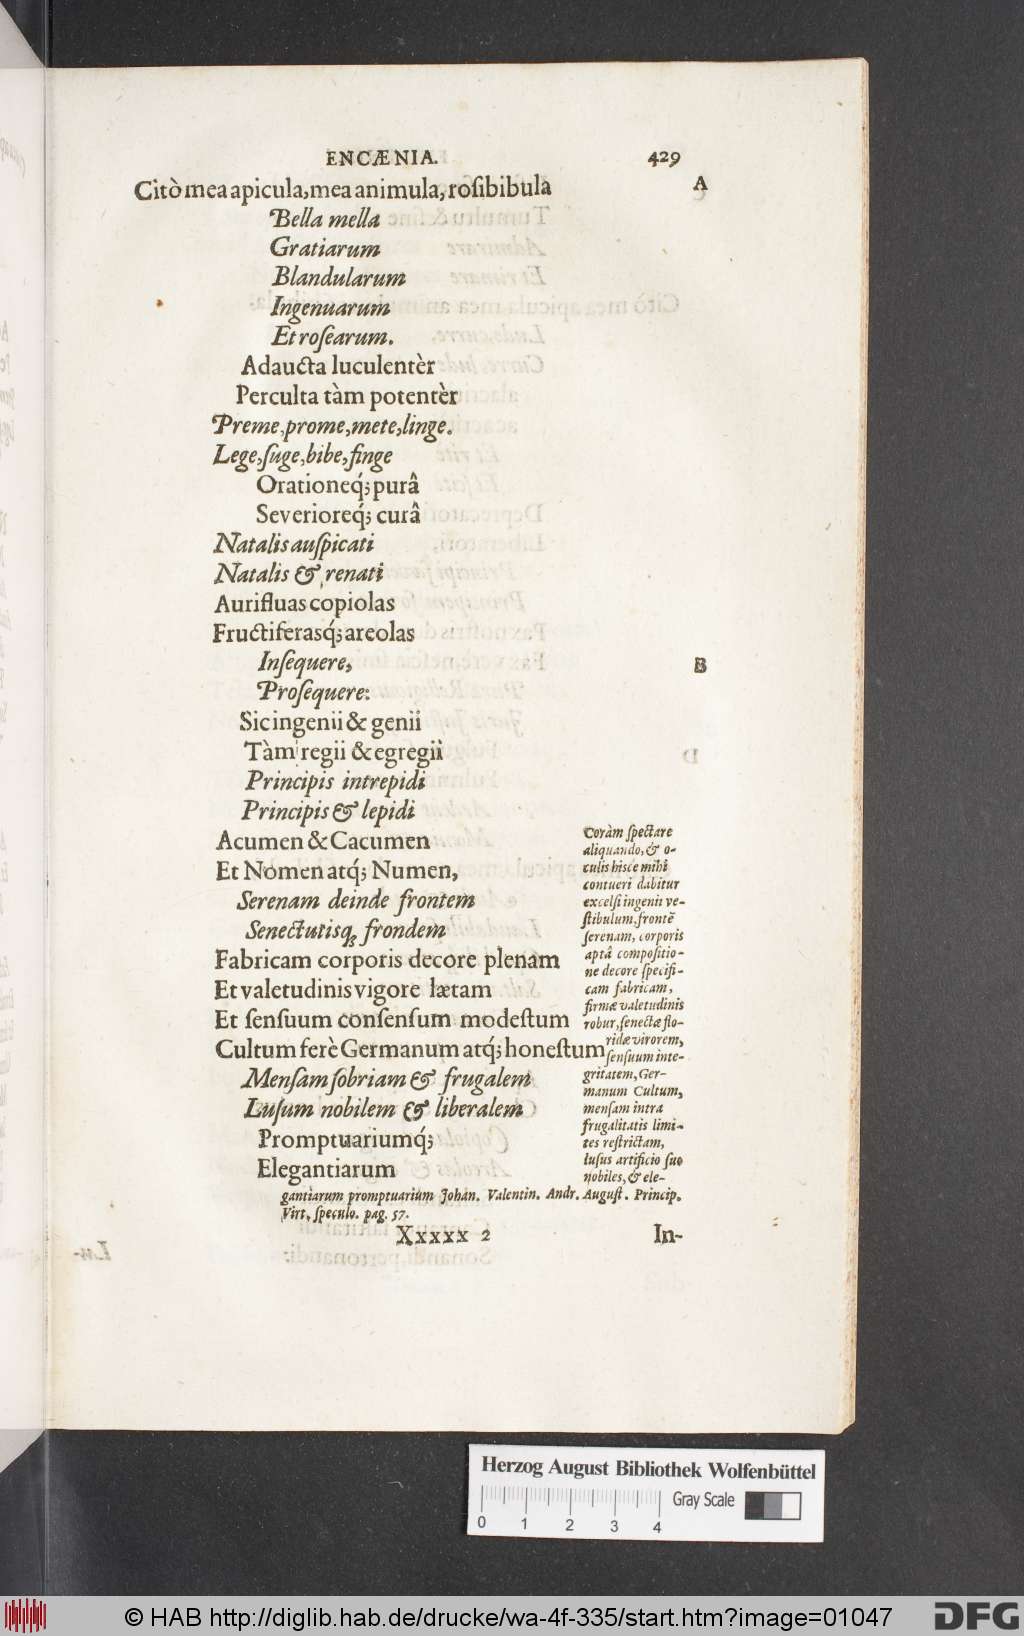 ENCÆNIA. 429
Citò mea apicula, mea animula, rosibibula A
Bella mella
Gratiarum
Blandularum
Ingenuarum
Et rosearum.
Adaucta luculentèr
Perculta tàm potentèr
Preme, prome, mete, linge.
Lege, suge, bibe, finge
Orationeq́; purâ
Severioreq́; curâ
Natalis auspicati
Natalis & renati
Aurifluas copiolas
Fructiferasq́; areolas
Insequere, B
Prosequere:
Sic ingenii & genii
Tàm regii & egregii
Principis intrepidi
Principis & lepidi
Acumen & Cacumen
Et Nomen atq́; Numen,
Serenam deinde frontem
Senectutisq; frondem
Fabricam corporis decore plenam
Et valetudinis vigore lætam
Et sensuum consensum modestum
Cultum ferè Germanum atq́; honestum
Mensam sobriam & frugalem
Lusum nobilem & liberalem
Promptuariumq́;
Elegantiarum
Coràm spectare
aliquando, & o-
culis hisce mihi
contueri dabitur
excelsi ingenii ve-
stibulum, frontē
serenam, corporis
aptâ compositio-
ne decore specifi-
cam fabricam,
firmæ valetudinis
robur, senectæ flo-
ridæ virorem,
sensuum inte-
gritatem, Ger-
manum Cultum,
mensam intra
frugalitatis limi-
tes restrictam,
lusus artificio suo
nobiles, & ele-
gantiarum promptuarium Johan. Valentin. Andr. August. Princip.
Virt. speculo. pag. 57.
Xxxxx 2 In-
Lu-
Herzog August Bibliothek Wolfenbüttel
Gray Scale
0 1 2 3 4
© HAB http://diglib.hab.de/drucke/wa-4f-335/start.htm?image=01047
DFG